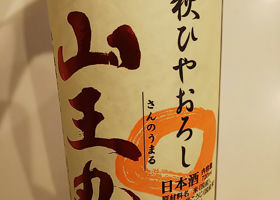 秋ひやおろし
山王丸
さんのうまる
日本酒
内容量
原材料名 米